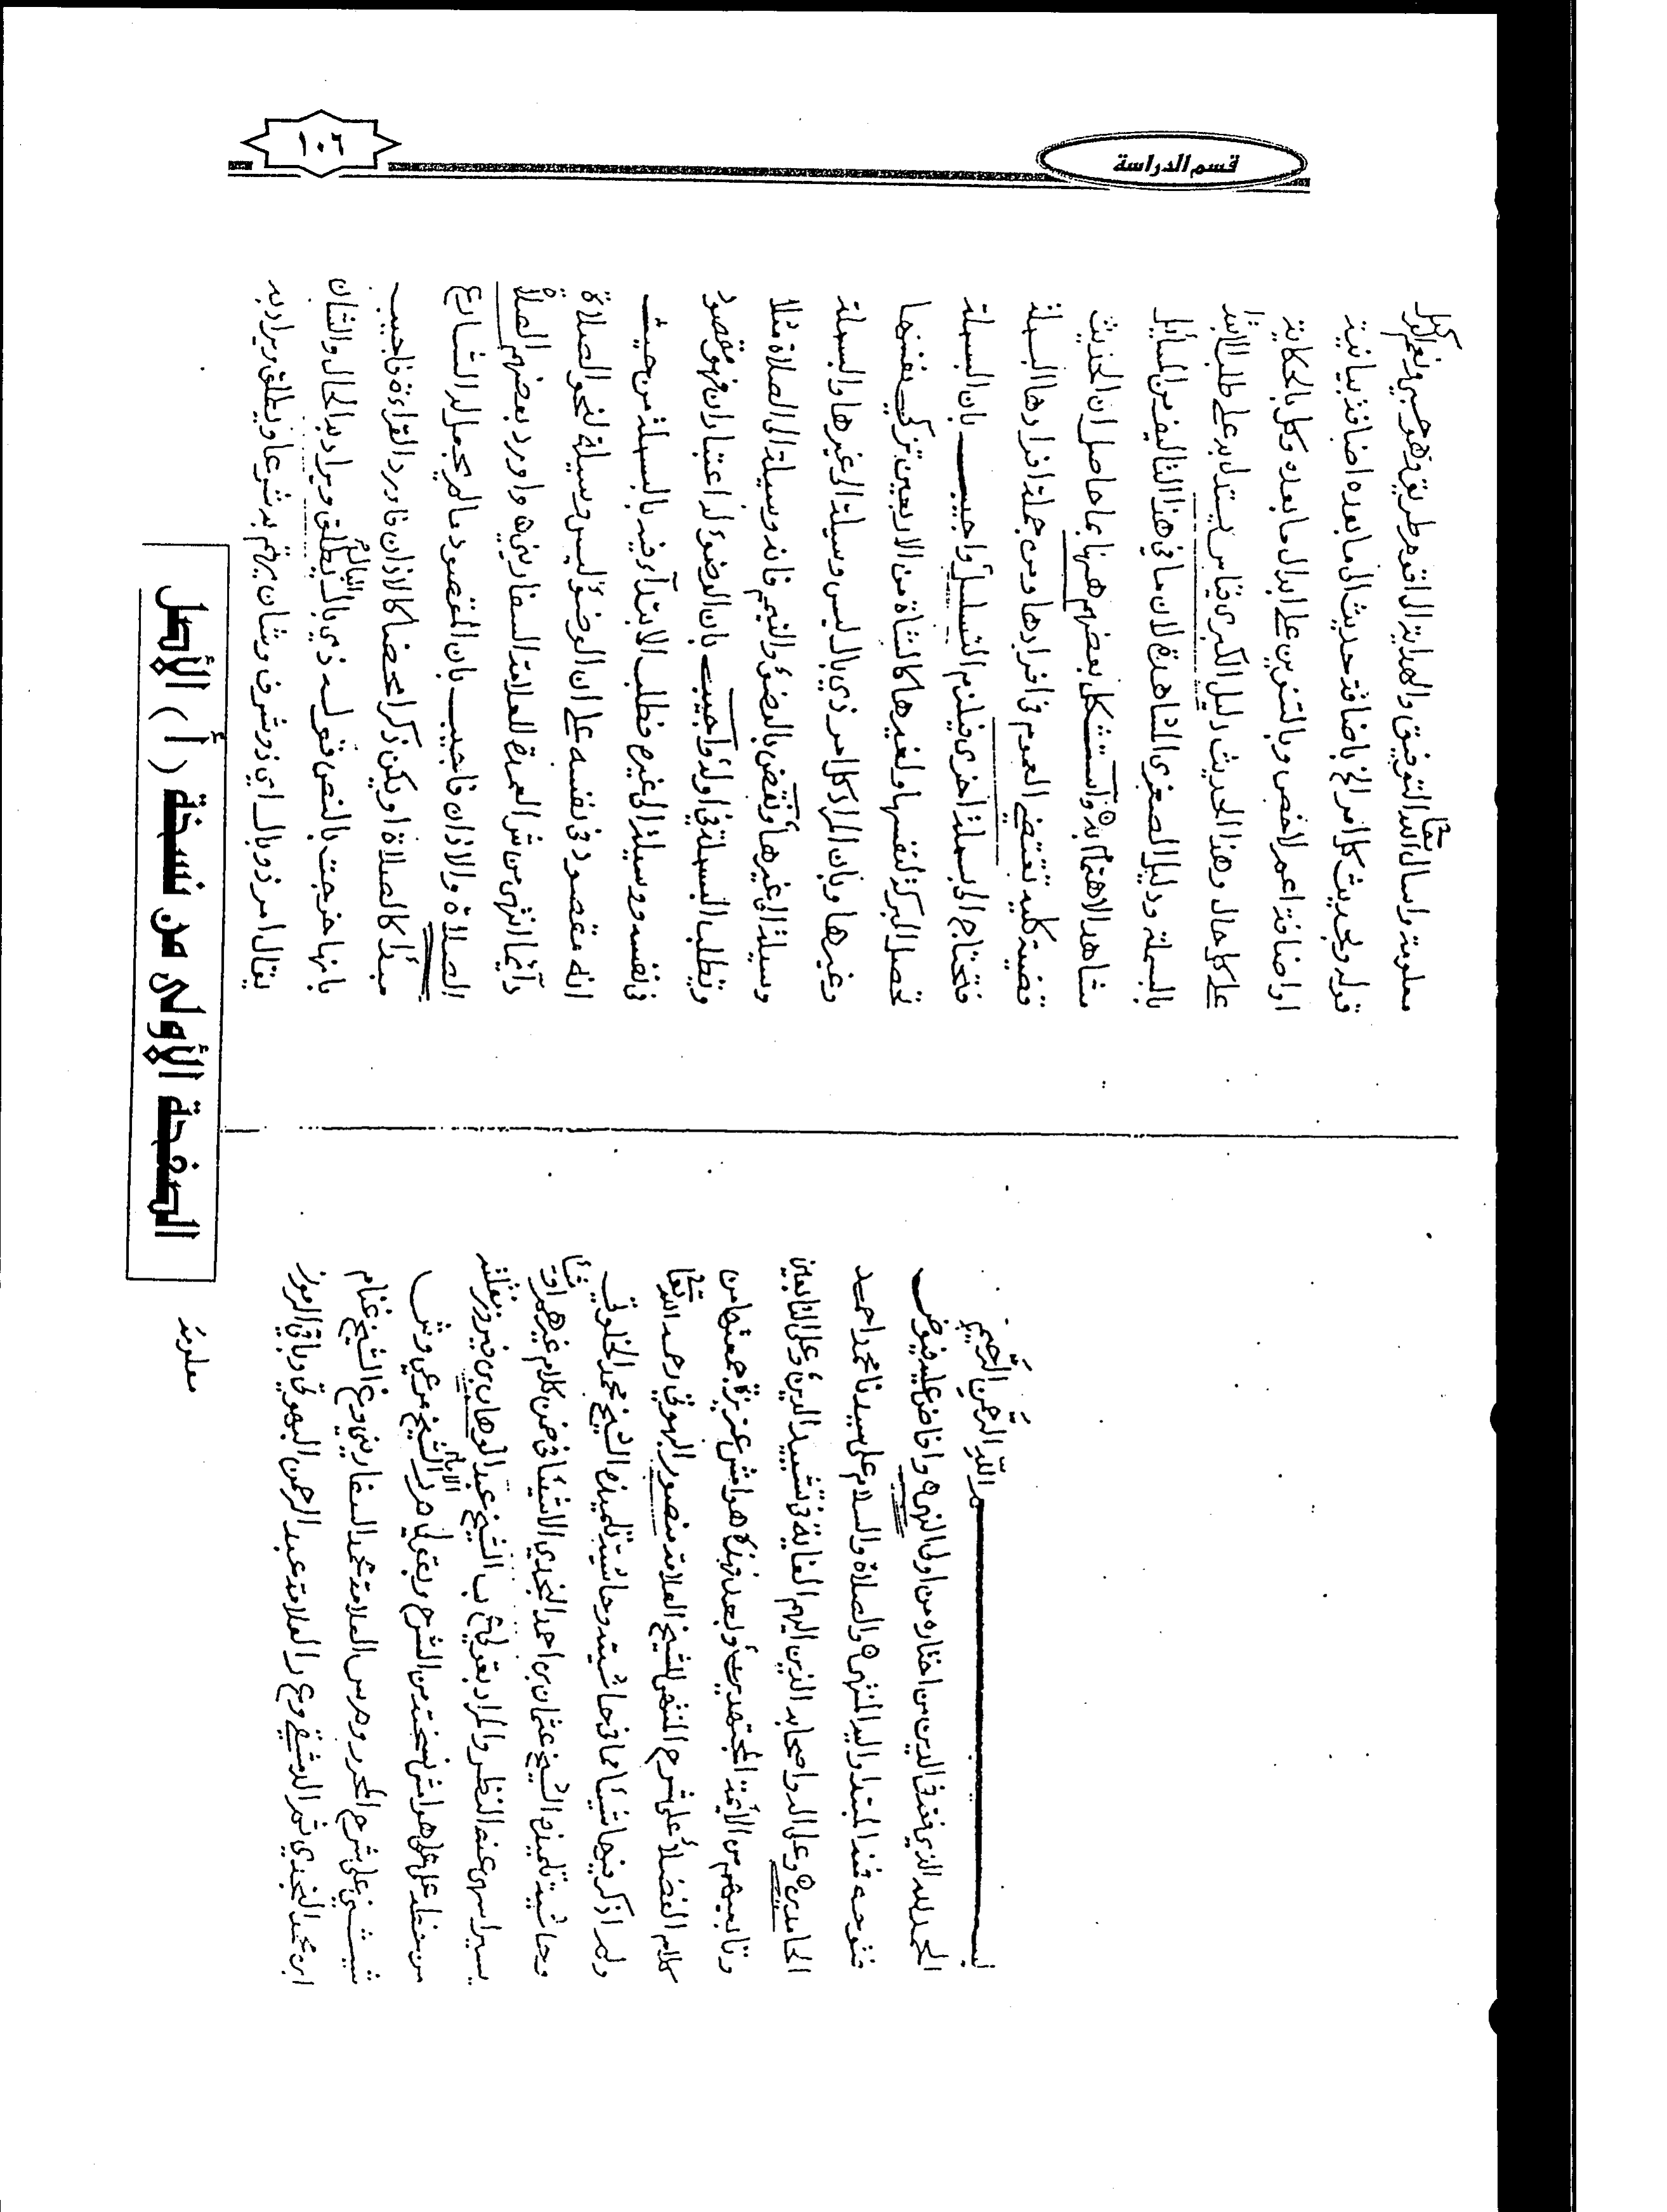 قسم الدراسة
١٠٦
بسم الله الرحمن الرحيم
الحمد لله الذي فقه في الدين من اختاره من اولى النهى وافاض عليه فيوض
فتوحه فنه المبتدا واليه المنتهى والصلاة والسلام على سيدنا محمد احمد
الحامدين وعلى اله واصحابه الذين اليهم الغاية في تشييد الدين وعلى التابعين
وتابعيهم من الأيمة المجتهدين وبعد فهذه هوامش عزيزة جمعتها من
كلام الفضلاء على شرح المنتهى للشيخ العلامة منصور البهوتي رحمه الله تعا
ولم اذكر فيها شيئا مما في حاشيته وحاشية تلميذه الشيخ محمد الخلوتي
وحاشية تلميذه الشيخ عثمان بن احمد النجدي الا شيئا في ضمن كلام غيرهم او شيئا
يسيرا سهى عنه النظر والمراد بقولي ع ب الشيخ عبد الوهاب بن فيروز نقلته
من خطه على هوامش نسخته من الشرح وبقولي م ر الشيخ مرعي وش
شيشني على شرح المحرر وم س العلامة محمد السفاريني وغ الشيخ غنام
ابن محمد النجدي ثم الدمشقي وع ر العلامة عبد الرحمن البهوتي وباقي الرموز
معلومة
معلومة واسال الله تعا التوفيق والهداية الى اقوم طريق وهو حسبي ونعم الوكيل
قوله وبحديث كل امر الخ باضافة حديث الى ما بعده اضافة بيانية
او اضافة اعم لاخص وبالتنوين على ابدال ما بعده وكل بالحكاية
على كل حال وهذا الحديث دليل الكبرى قياس يستدل به على طلب الابتدا
بالبسملة ودليل الصغرى المشاهدة لان ما في هذا التاليف من المسايل
مشاهد الاهتمام به واستشكل بعضهم هنا بما حاصل ان الحديث
قضيته كلية تقتضي العموم في افرادها ومن جملة افرادها البسملة
فتحتاج الى بسملة اخرى فيلزم التسلسل واجيب بان البسملة
تحصل البركة لنفسها ولغيرها كالشاة من الاربعين تزكي نفسها
وغيرها وبان المراد كل امر ذي بال ليس وسيلة الى غيرها والبسملة
وسيلة الى غيرها ونقض بالوضوء والتيمم فانه وسيلة الى الصلاة مثلا
وتطلب البسملة في اوله واجيب بان الوضوء له اعتباران فهو مقصود
في نفسه ووسيلة الى غيره فطلب الابتداء فيه بالبسملة من حيث
انه مقصود في نفسه على ان الوضوء ليس وسيلة لنحو الصلاة
دائما انتهى من شرح العمدة للعلامة السفاريني واورد بعضهم الصلاة
الصلاة والاذان فاجيب بان المقصود ما لم يجعل له الشارع
مبدأ كالصلاة او يكن ذكرا محضا كالاذان فاورد القراءة فاجيب
بانها خرجت بالنص قوله ذي بال البال يطلق ويراد به الحال والشان
يقال امر ذو بال اي ذو شرف وشان يهتم به شرعا ويطلق ويراد به
الصفحة الأولى من نسخة (أ) الأصل